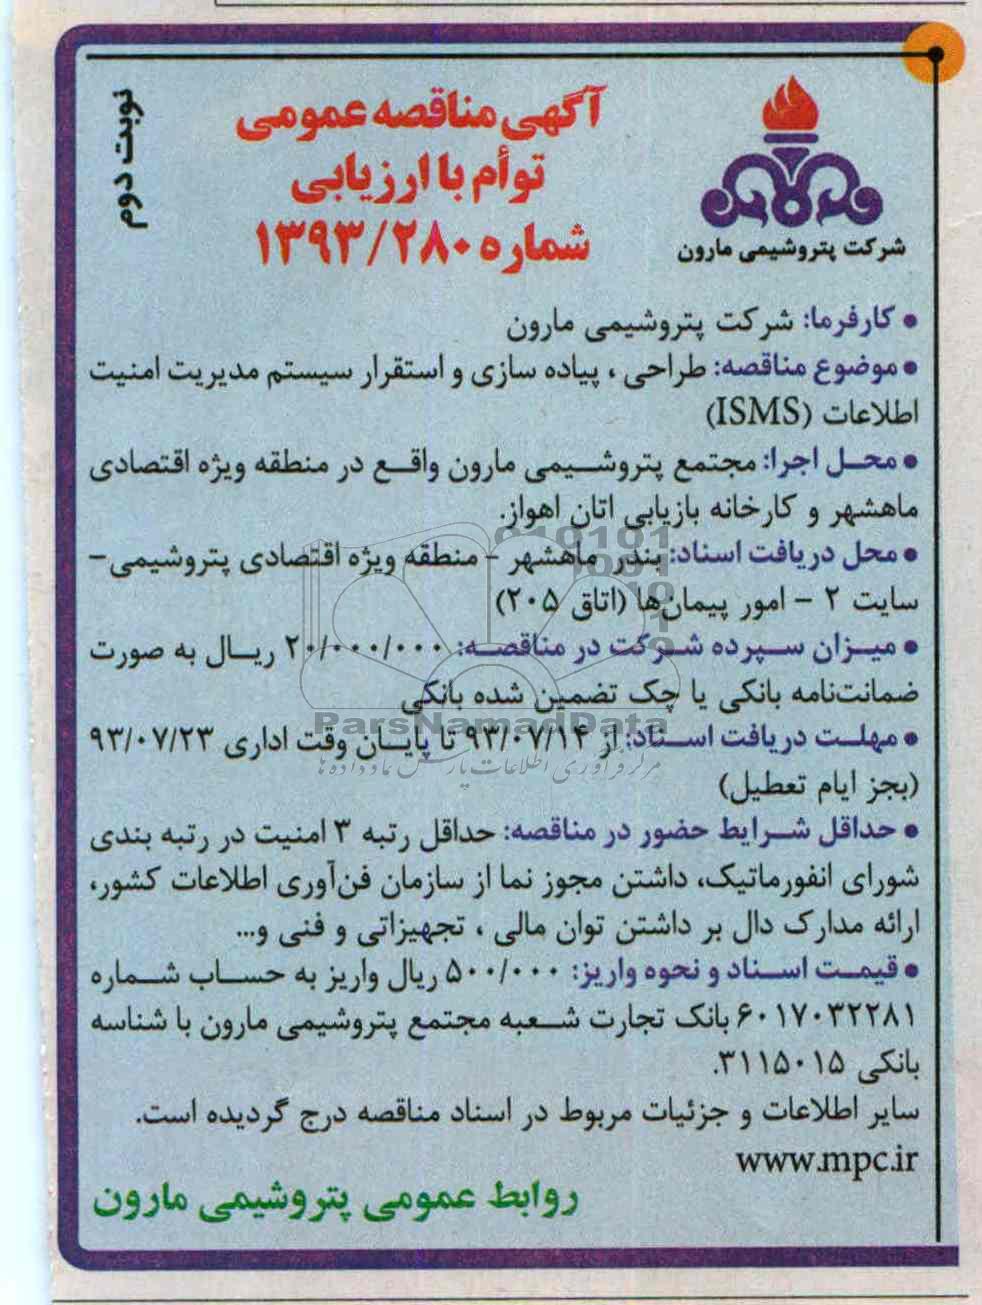 نوبت دوم
آگهی مناقصه عمومی
توأم با ارزیابی
شماره ۱۳۹۳/۲۸۰
شرکت پتروشیمی مارون
• کارفرما: شرکت پتروشیمی مارون
• موضوع مناقصه: طراحی ، پیاده سازی و استقرار سیستم مدیریت امنیت
اطلاعات (ISMS)
• محل اجرا: مجتمع پتروشیمی مارون واقع در منطقه ویژه اقتصادی
ماهشهر و کارخانه بازیابی اتان اهواز.
• محل دریافت اسناد: بندر ماهشهر - منطقه ویژه اقتصادی پتروشیمی-
سایت ۲ - امور پیمان‌ها (اتاق ۲۰۵)
• میزان سپرده شرکت در مناقصه: ۲۰/۰۰۰/۰۰۰ ریال به صورت
ضمانت‌نامه بانکی یا چک تضمین شده بانکی
ParsNamadData
• مهلت دریافت اسناد: از ۹۳/۰۷/۱۴ تا پایان وقت اداری ۹۳/۰۷/۲۳
مرکز فرآوری اطلاعات پارس نماد داده ها
(بجز ایام تعطیل)
• حداقل شرایط حضور در مناقصه: حداقل رتبه ۳ امنیت در رتبه بندی
شورای انفورماتیک، داشتن مجوز نما از سازمان فن‌آوری اطلاعات کشور،
ارائه مدارک دال بر داشتن توان مالی ، تجهیزاتی و فنی و...
• قیمت اسناد و نحوه واریز: ۵۰۰/۰۰۰ ریال واریز به حساب شماره
۶۰۱۷۰۳۲۲۸۱ بانک تجارت شعبه مجتمع پتروشیمی مارون با شناسه
بانکی ۳۱۱۵۰۱۵.
سایر اطلاعات و جزئیات مربوط در اسناد مناقصه درج گردیده است.
www.mpc.ir
روابط عمومی پتروشیمی مارون